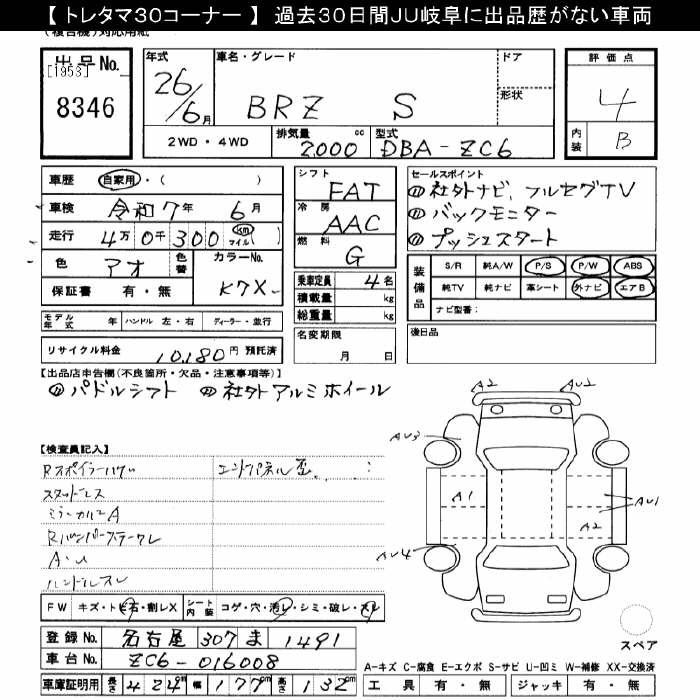 【 トレタマ30コーナー 】 過去30日間JU岐阜に出品歴がない車両
(複合機)対応用紙
出品No. [1953] 8346
年式 26/6月
車名・グレード BRZ S
ドア
形状
2WD・4WD
排気量 2000 cc
型式 DBA-ZC6
評価点 4
内装 B
車歴 自家用・( )
車検 令和7年 6月
走行 4万0千300 km マイル( )
色 アオ 色替
カラーNo. K7X
保証書 有・無
モデル年式 年 ハンドル 左・右 ディーラー・並行
リサイクル料金 10,180円 預託済
シフト FAT
冷房 AAC
燃料 G
乗車定員 4名
積載量 kg
総重量 kg
名変期限 月 日
セールスポイント
社外ナビ、フルセグTV
バックモニター
プッシュスタート
装備品 S/R 純A/W P/S P/W ABS
純TV 純ナビ 革シート 外ナビ エアB
ナビ型番:
後日品
【出品店申告欄(不良箇所・欠品・注意事項等)】
パドルシフト 社外アルミホイール
【検査員記入】
エンドパネル歪
A・U
FW キズ・トビ石・割レX シート内装 コゲ・穴・汚レ・シミ・破レ・スレ
A2
AU2
AU3
A1
AU1
A2
AU4
スペア
登録No. 名古屋 307 ま 1491
車台No. ZC6-016008
車庫証明用 長さ 424cm 幅 177cm 高さ 132cm
A-キズ C-腐食 E-エクボ S-サビ U-凹ミ W-補修 XX-交換済
工具 有・無 ジャッキ 有・無